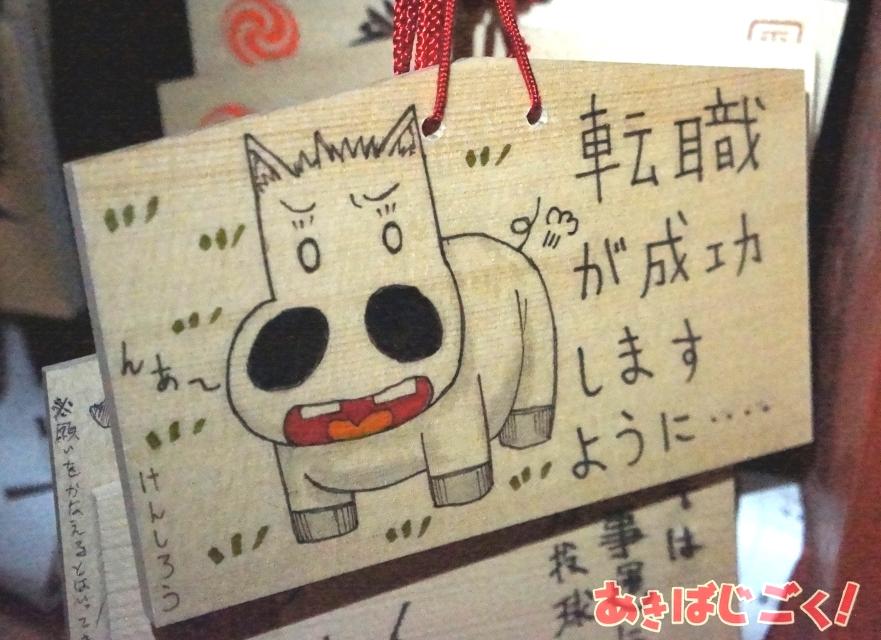 転職
が成功
します
ように‥‥
んあ~
けんしろう
必願いをかなえるとは
は
事
投球
あきばじごく!